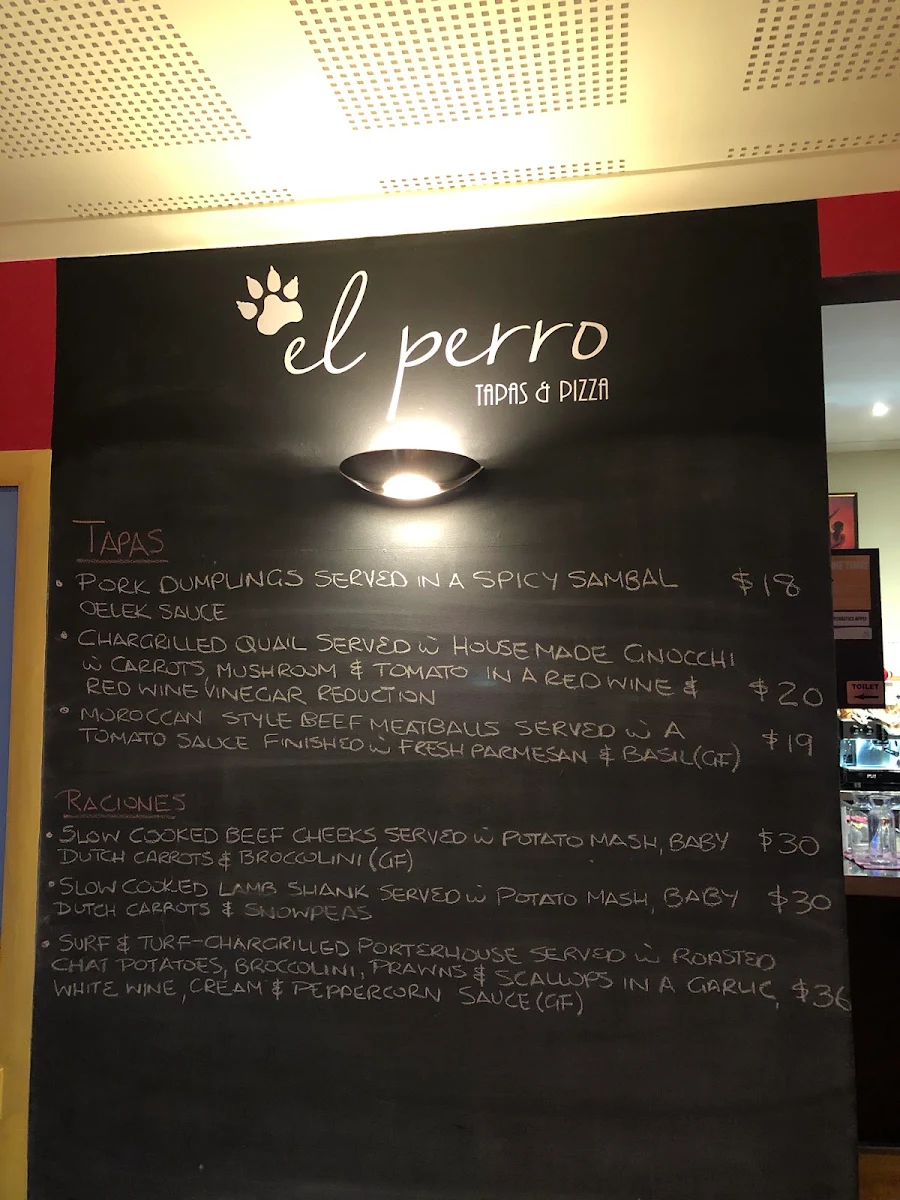 el perro
TAPAS & PIZZA
TAPAS
• PORK DUMPLINGS SERVED IN A SPICY SAMBAL $18
OELEK SAUCE
• CHARGRILLED QUAIL SERVED w HOUSEMADE GNOCCHI
w CARROTS, MUSHROOM & TOMATO IN A RED WINE & $20
RED WINE VINEGAR REDUCTION
• MOROCCAN STYLE BEEF MEATBALLS SERVED w A
TOMATO SAUCE FINISHED w FRESH PARMESAN & BASIL (GF) $19
RACIONES
• SLOW COOKED BEEF CHEEKS SERVED w POTATO MASH, BABY $30
DUTCH CARROTS & BROCCOLINI (GF)
• SLOW COOKED LAMB SHANK SERVED w POTATO MASH, BABY $30
DUTCH CARROTS & SNOWPEAS
• SURF & TURF-CHARGRILLED PORTERHOUSE SERVED w ROASTED
CHAT POTATOES, BROCCOLINI, PRAWNS & SCALLOPS IN A GARLIC,
WHITE WINE, CREAM & PEPPERCORN SAUCE (GF) $36
TOILET